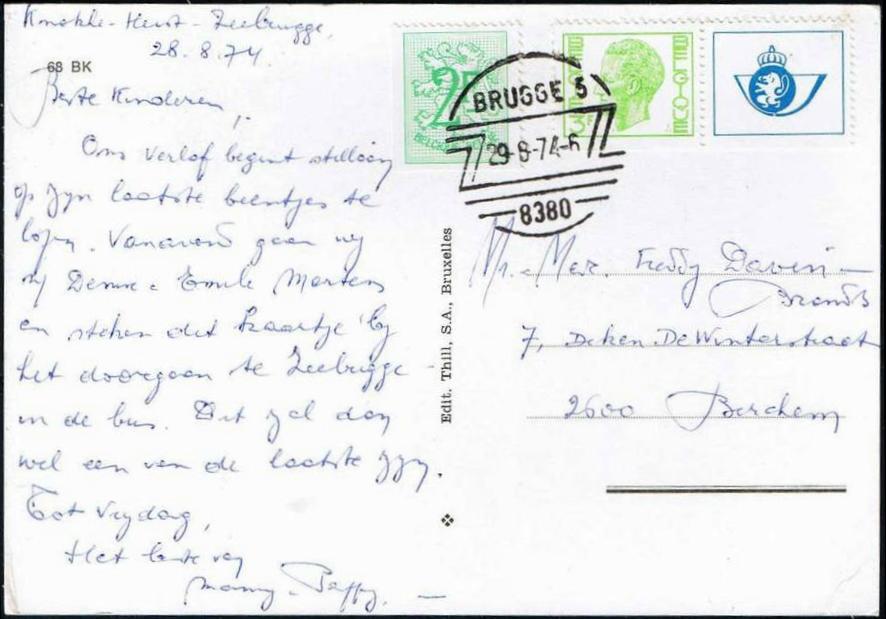 Knokke-Heist-Zeebrugge,
28.8.74.
68 BK
Beste Kinderen,
Ons verlof begint stillaan
op zyn laatste beentjes te
lopen. Vanavond gaan wy
by Denise - Emile Martens
en steken dit kaartje by
het doorgaan te Zeebrugge
in de bus. Dit zal dan
wel een van de laatste zyn.
Tot Vrydag,
Het beste van
Mammy - Pappy.
Edit. Thill, S.A., Bruxelles
25
BRUGGE 5
29-8-74-
8380
BELGIQUE
Mr. - Mev. Freddy Davin -
Brands
7, Deken De Winterstraat
2600 Berchem